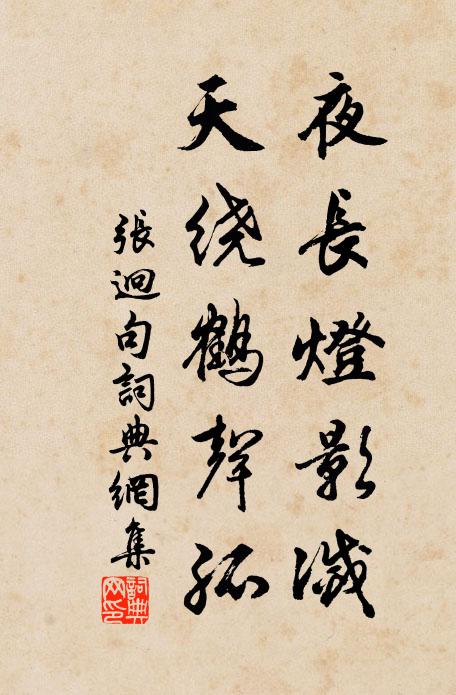 夜長燈影滅
天绕鶴聲孤
張迥句詞典網集
詞典网印